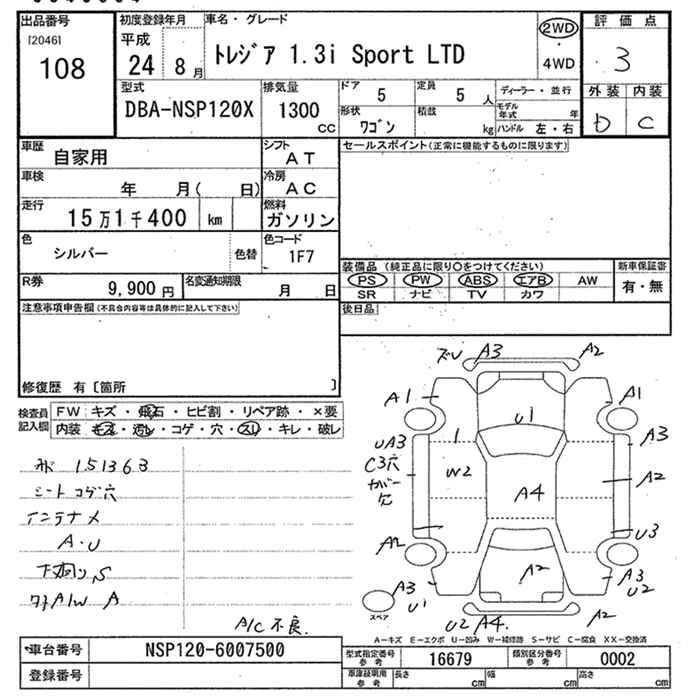 出品番号
[2046]
108
初度登録年月
平成
24 8 月
車名・グレード
トレジア 1.3i Sport LTD
2WD
4WD
評価点
3
外装 内装
D C
型式
DBA-NSP120X
排気量
1300 CC
ドア 5
定員 5 人
形状 ワゴン
積載 kg
ディーラー・並行
モデル年式 年
ハンドル 左・右
車歴 自家用
シフト AT
車検 年 月( 日)
冷房 AC
走行 15万1千400 km
燃料 ガソリン
色 シルバー 色替
色コード 1F7
R券 9,900 円
名変通知期限 月 日
セールスポイント(正常に機能するものに限ります)
装備品 (純正品に限り○をつけてください)
新車保証書
PS PW ABS エアB AW
有・無
SR ナビ TV カワ
後日品
注意事項申告欄(不具合内容等は具体的に記入して下さい)
修復歴 有〔箇所 〕
検査員記入欄
FW キズ・飛石・ヒビ割・リペア跡・×要
内装 キズ・汚レ・コゲ・穴・スレ・キレ・破レ
151363
シートコゲ穴
インテナメ
A・U
下廻りS
A/W A
A/C不良.
ズレ A3 A2
A1 A1
U1
UA3 A3
C3穴
カバー欠
W2 A2
A4
U3
A2
A2
A3 A3
U1 U2
スペア
U2 A4. A2
A-キズ E-エクボ U-凹み W-補修跡 S-サビ C-腐食 XX-交換済
車台番号 NSP120-6007500
登録番号
型式指定番号参考 16679
類別区分番号参考 0002
車庫証明用参考 長さ cm 幅 cm 高さ cm